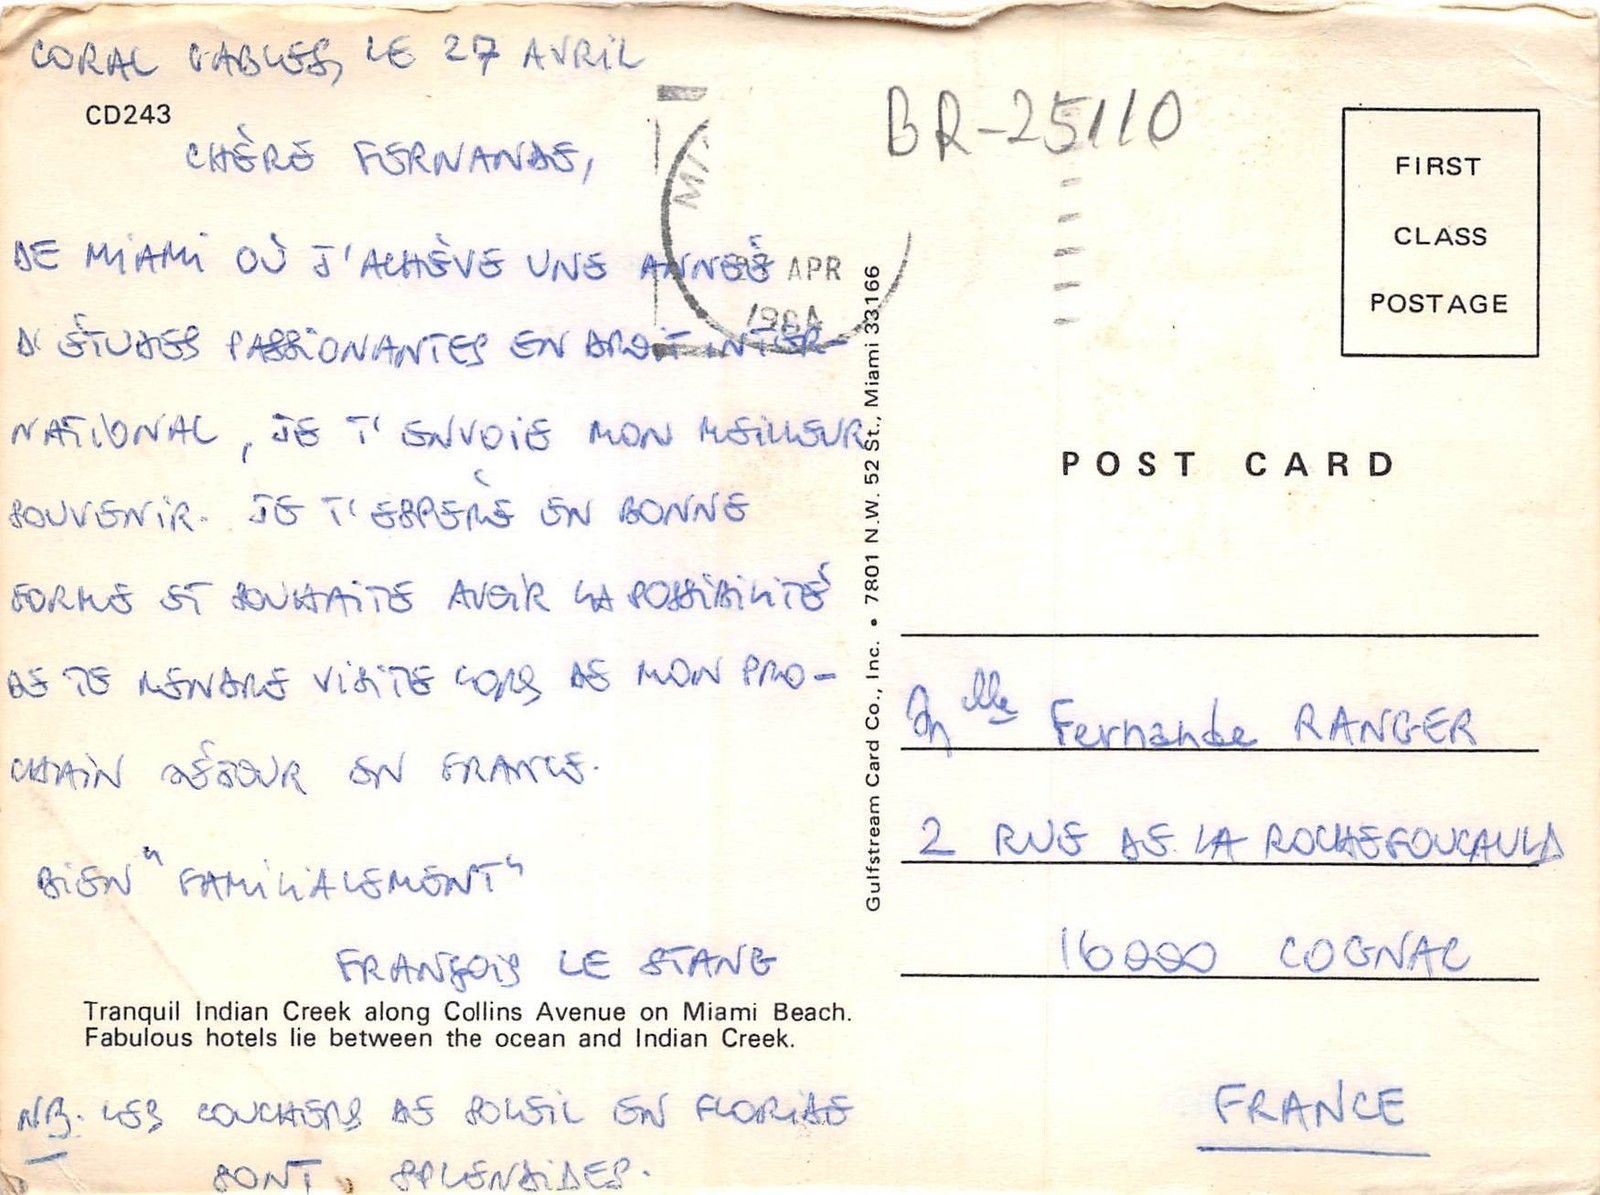 CORAL GABLES, LE 27 AVRIL
CD243
CHÈRE FERNANDE,
DE MIAMI OÙ J'ACHÈVE UNE ANNÉE
D'ÉTUDES PASSIONANTES EN DROIT INTER-
NATIONAL, JE T'ENVOIE MON MEILLEUR
SOUVENIR. JE T'ESPÈRE EN BONNE
FORME ET SOUHAITE AVOIR LA POSSIBILITÉ
DE TE RENDRE VISITE LORS DE MON PRO-
CHAIN SÉJOUR EN FRANCE.
BIEN "FAMILIALEMENT"
FRANÇOIS LE STANG
Tranquil Indian Creek along Collins Avenue on Miami Beach.
Fabulous hotels lie between the ocean and Indian Creek.
NB. LES COUCHERS DE SOLEIL EN FLORIDE
SONT SPLENDIDES.
APR
Gulfstream Card Co., Inc. • 7801 N.W. 52 St., Miami 33166
BR-25110
FIRST
CLASS
POSTAGE
POST CARD
Mlle Fernande RANGER
2 RUE DE LA ROCHEFOUCAULD
16000 COGNAC
FRANCE